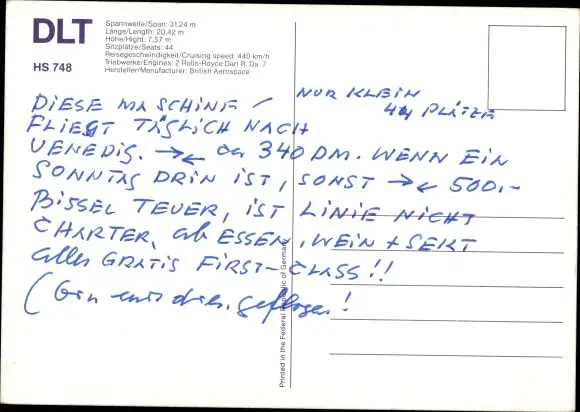 DLT
HS 748
Spannweite/Span: 31,24 m
Länge/Length: 20,42 m
Höhe/Hight: 7,57 m
Sitzplätze/Seats: 44
Reisegeschwindigkeit/Cruising speed: 440 km/h
Triebwerke/Engines: 2 Rolls-Royce Dart R. Da. 7
Hersteller/Manufacturer: British Aerospace
NUR KLEIN
44 PLÄTZE
DIESE MASCHINE /
FLIEGT TÄGLICH NACH
VENEDIG. →← ca 340 DM. WENN EIN
SONNTAG DRIN IST, SONST →← 500.-
BISSEL TEUER, IST LINIE NICHT
CHARTER, ab ESSEN, WEIN + SEKT
alles GRATIS FIRST-CLASS!!
(bin mit geflogen!
Printed in the Federal Republic of Germany